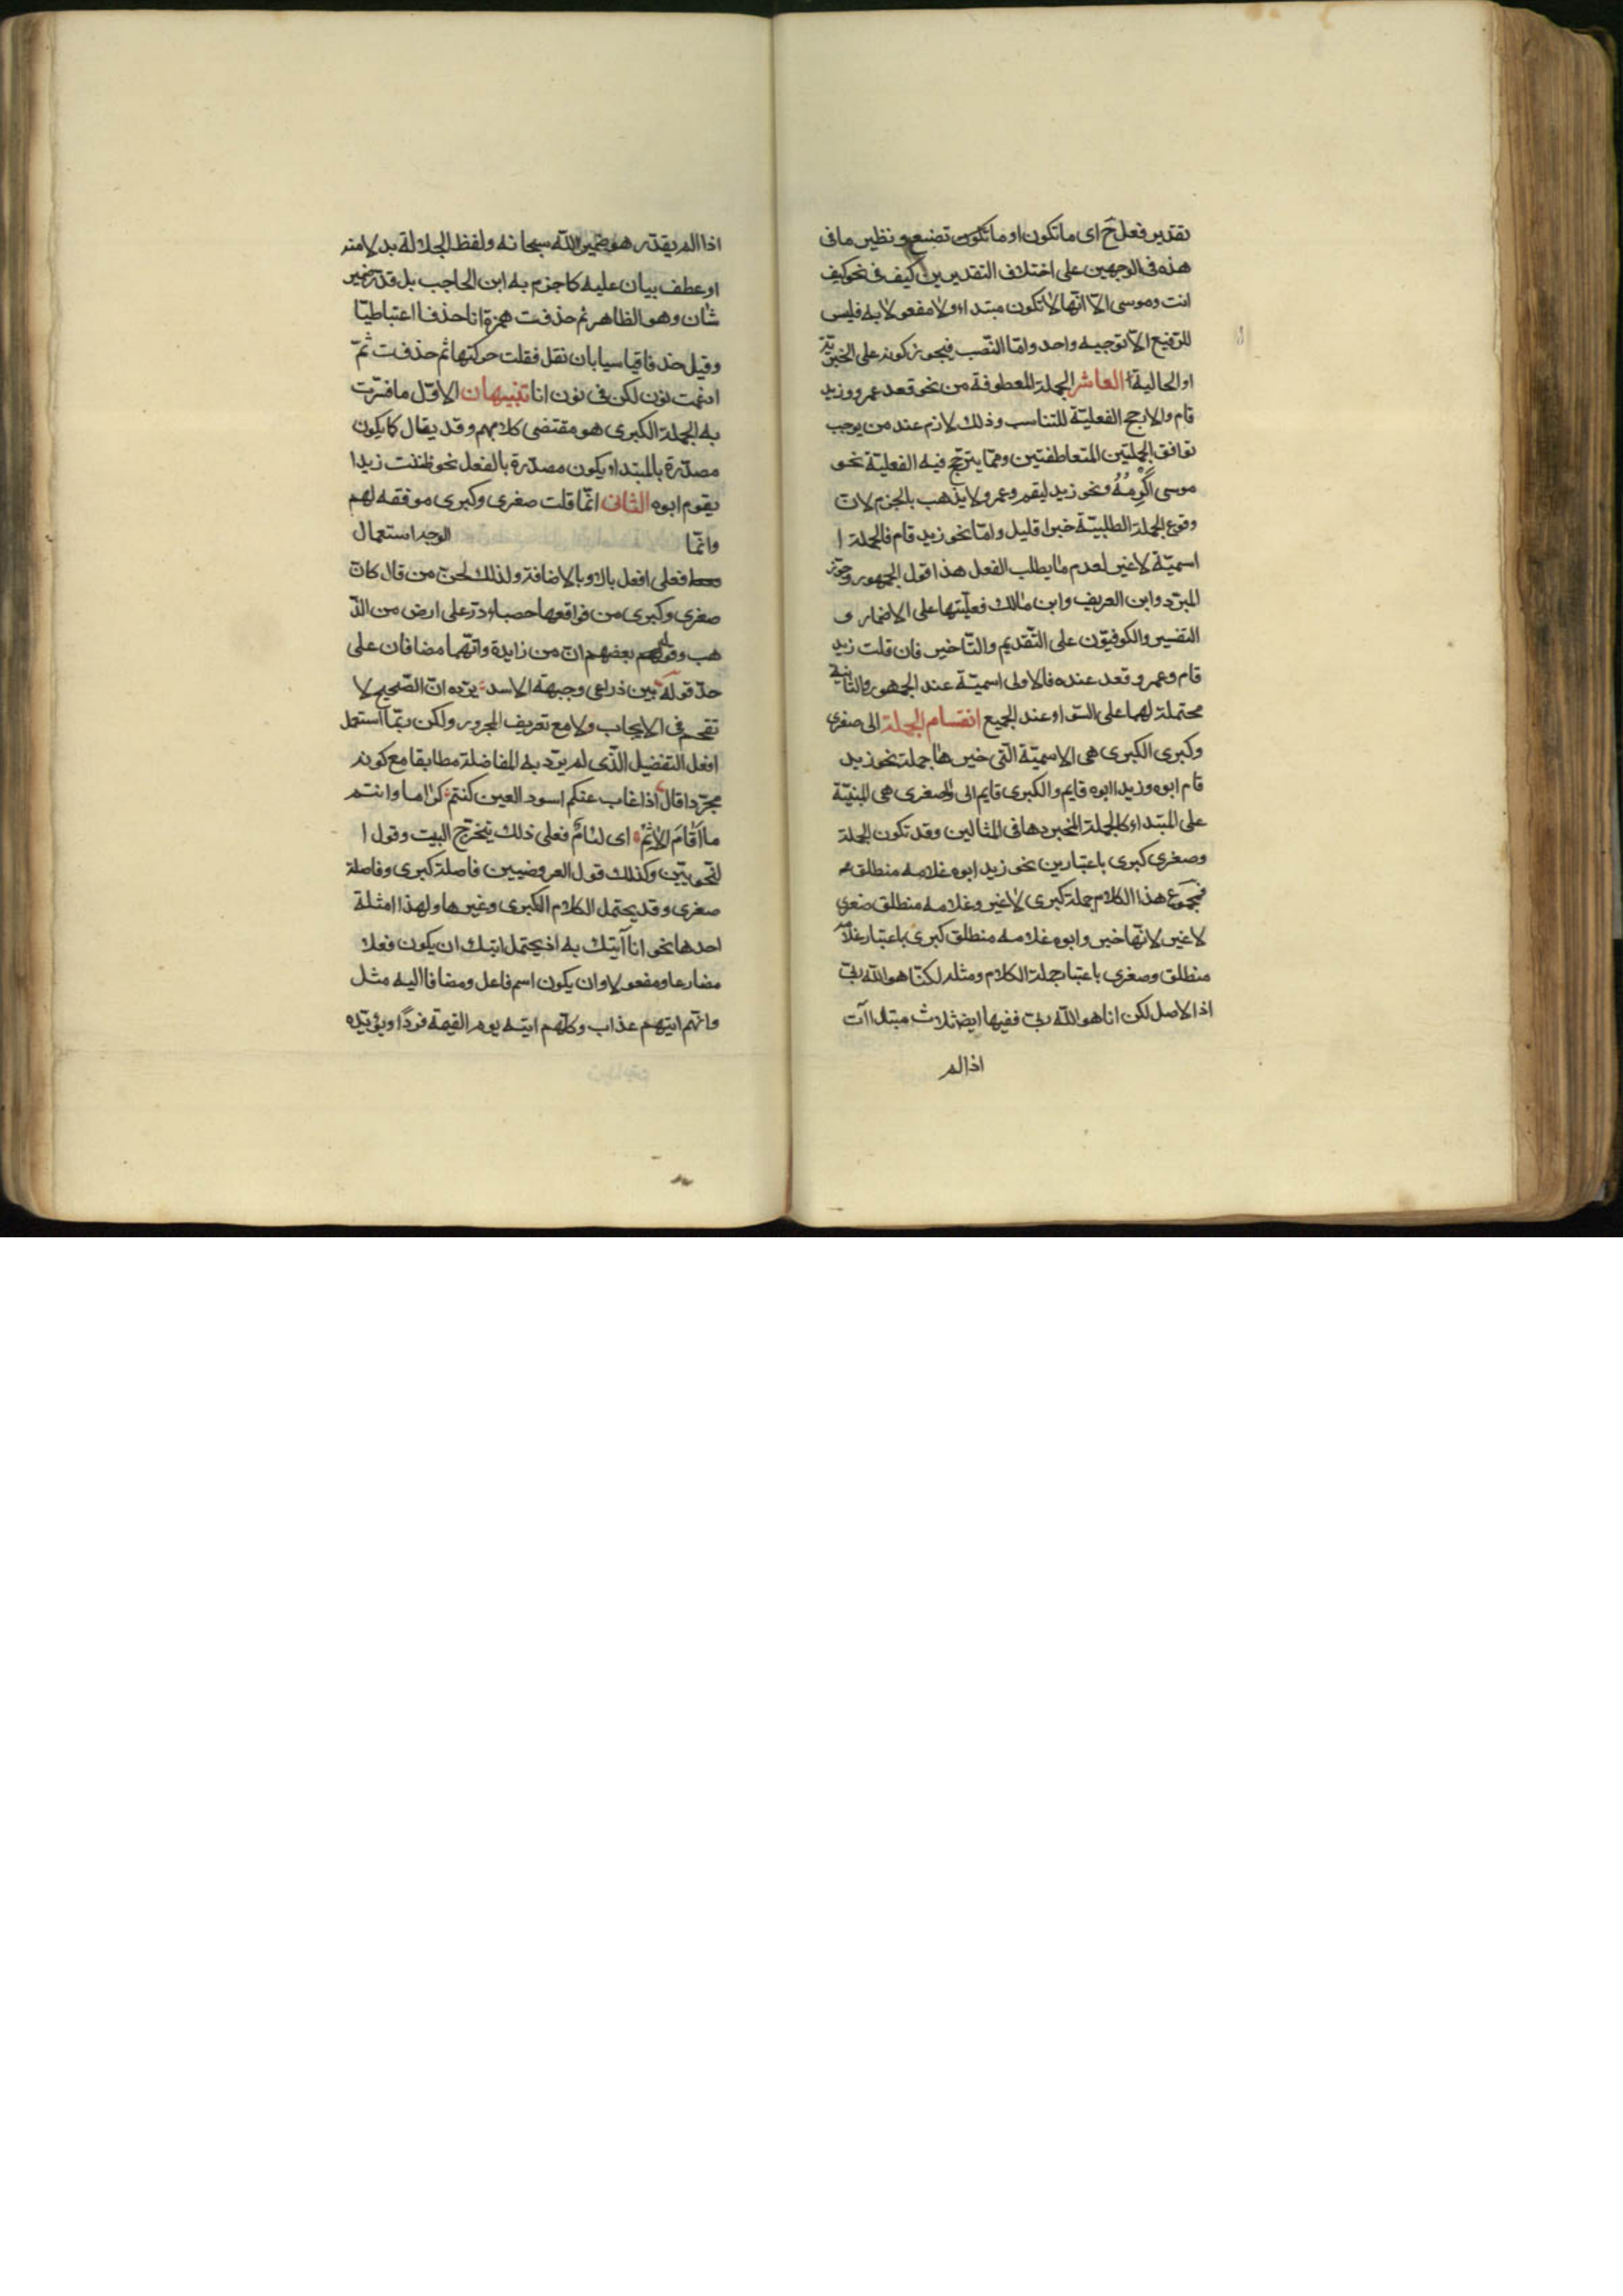 تقدير فعل ح اى ما تكون او ما تكون تصنع و نظير ما فى
هذه فى الوجهين على اختلاف التقديرين كيف فى نحو كيف
انت و موسى الّا انّها لا تكون مبتداء ولا مفعولا به فليس
للرّفع الّا توجيه واحد وامّا النّصب فيجوز كونه على الخبريّة
او الحالية العاشر الجملة المعطوفة من نحو قعد عمرو و زيد
قام والارجح الفعليّة للتناسب وذلك لازم عند من يوجب
توافق الجملتين المتعاطفتين وممّا يترجّح فيه الفعليّة نحو
موسى اكْرِمْهُ ونحو زيد ليقم وعمرو لا يذهب بالجزم لانّ
وقوع الجملة الطلبيّة خبرا قليل وامّا نحو زيد قام فالجملة ا
اسميّة لا غير لعدم ما يطلب الفعل هذا قول الجمهور وجوّز
المبرّد وابن العريف وابن مالك فعليّتها على الاضمار و
التفسير والكوفيّون على التّقديم والتّاخير فان قلت زيد
قام وعمرو قعد عنده فالاولى اسميّة عند الجمهور والثانية
محتملة لهما على السّواء عند الجميع انقسام الجملة الى صغرى
وكبرى الكبرى هى الاسميّة الّتى خبرها جملة نحو زيد
قام ابوه وزيد ابوه قايم والصغرى هى المبنيّة
على المبتداء كالجملة المخبر بها فى المثالين وقد تكون الجملة
وصغرى كبرى باعتبارين نحو زيد ابوه غلامه منطلق
فمجموع هذا الكلام جملة كبرى لا غير وغلامه منطلق صغرى
لا غير لانّها خبر وابوه غلامه منطلق كبرى باعتبار غلامه
منطلق وصغرى باعتبار جملة الكلام ومثله لكنّا هو الله ربّى
اذ الاصل لكن انا هو الله ربّى ففيها ايضا ثلاث مبتداآت
اذا لم
اذا لم يقدّر هو ضمير الله سبحانه ولفظ الجلالة بدلا منه
او عطف بيان عليه كما جزم به ابن الحاجب بل قدّر ضمير
شان وهو الظاهر ثم حذفت همزة انا حذفا اعتباطيّا
وقيل حذفا قياسيا بان نقل فقلت حركتها ثم حذفت ثمّ
ادغمت نون لكن فى نون انا تنبيهان الاوّل ما فسّرت
به الجملة الكبرى هو مقتضى كلامهم وقد يقال كما يكون
مصدّرة بالمبتداء يكون مصدّرة بالفعل نحو ظننت زيدا
يقوم ابوه الثانى انّما قلت صغرى وكبرى موفقه لهم
وانّما الوجه استعمال
فعلى افعل بال او بالاضافة ولذلك لحّن من قال كانّ
صغرى وكبرى من فواقعها حصباء درّ على ارض من الذّ
هب وقول بعضهم انّ من زايدة وانّهما مضافان على
حدّ قوله بين ذراعى وجبهة الاسد يردّه انّ الصّحيح لا
تقحم فى الايجاب ولا مع تعريف المجرور ولكن ربّما استعمل
افعل التفضيل الّذى لم يرد به المفاضلة مطابقا مع كونه
مجرّدا قال اذا غاب عنكم اسود العين كنتم كراما وانتم
ما اَقَامَ الاَئِمُ اى لئام فعلى ذلك يتخرّج البيت وقول ا
لنّحويّين وكذلك قول العروضيين فاصلة كبرى وفاصلة
صغرى وقد يحتمل الكلام الكبرى وغيرها ولهذا امثلة
احدها نحو انا آتيك به اذ يحتمل اتيك ان يكون فعلا
مضارعا ومفعولا وان يكون اسم فاعل ومضافا اليه مثل
وانّهم اتيهم عذاب وكلّهم اتيه يوم القيمة فردًا ويؤيّده